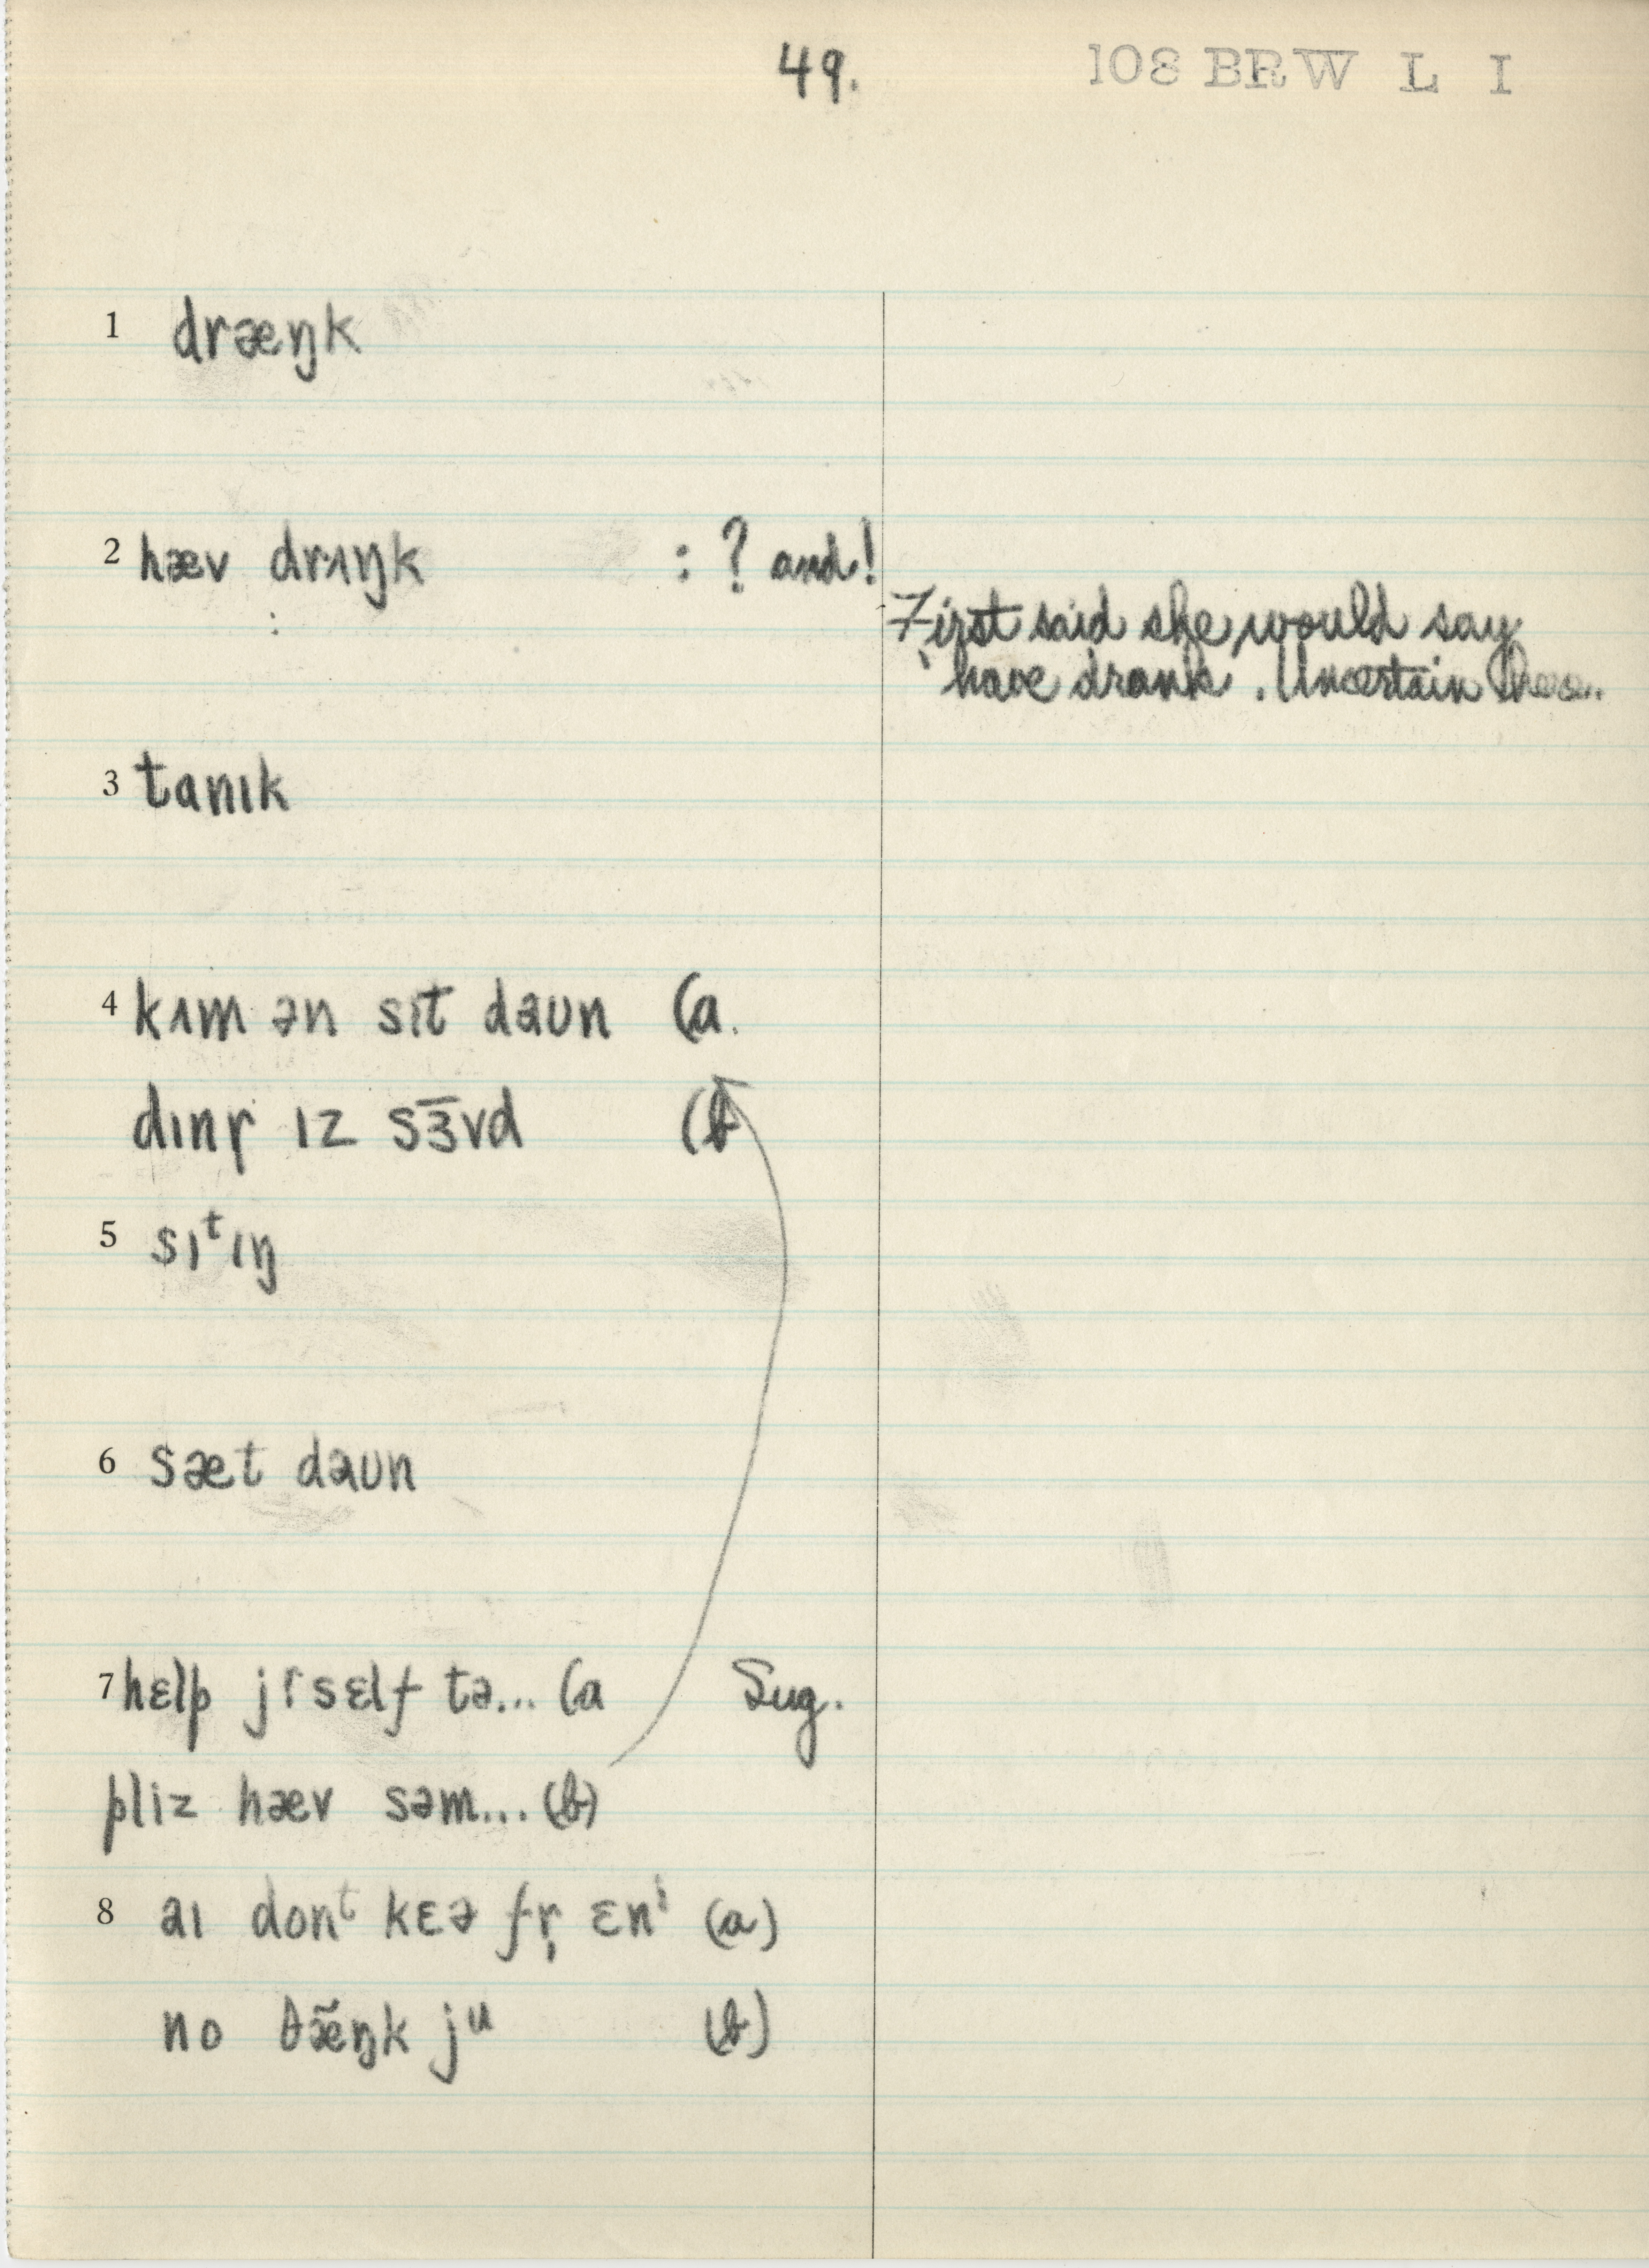 49.
108 BRW L I
1 dræŋk
2 hæv drʌŋk : ? and!
:
First said she would say
'have drank. Uncertain
3 tanɪk
4 kʌm ən sɪt daʊn (a.
dɪnr̩ ɪz sɜ̄vd (b
5 sɪᵗɪŋ
6 sæt daʊn
7 hɛlp jr̩sɛlf tə... (a Sug.
pliz hæv səm... (b)
8 aɪ donᵗ kɛə fr̩ ɛnⁱ (a)
no θæ̃ŋk jᵘ (b)